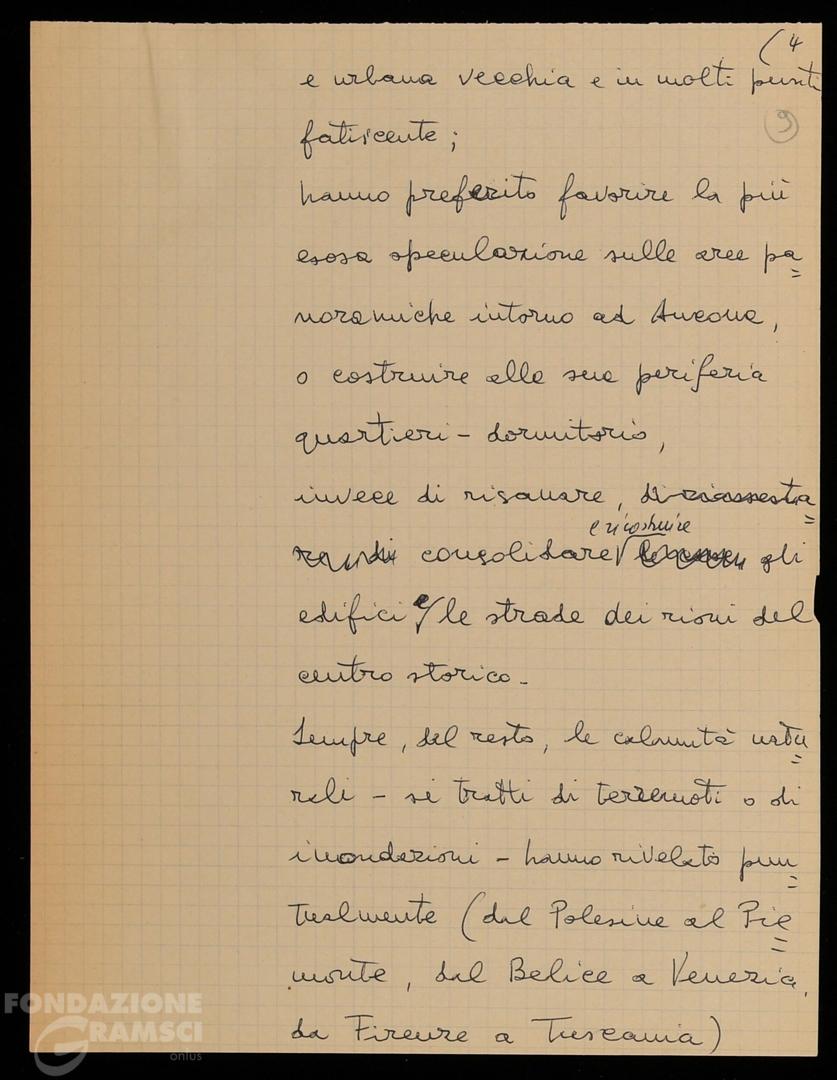 (4
e urbana vecchia e in molti punti
9
fatiscente ;
hanno preferito favorire la più
esosa speculazione sulle aree pa=
noramiche intorno ad Ancona,
o costruire alla sua periferia
quartieri - dormitorio,
invece di risanare, di riassesta=
e ricostruire
re, di consolidare gli
edifici e le strade dei rioni del
centro storico -
Sempre, del resto, le calamità natu=
rali - si tratti di terremoti o di
inondazioni - hanno rivelato pun=
tualmente (dal Polesine al Pie=
monte, dal Belice a Venezia,
da Firenze a Tuscania)
FONDAZIONE
GRAMSCI
onlus